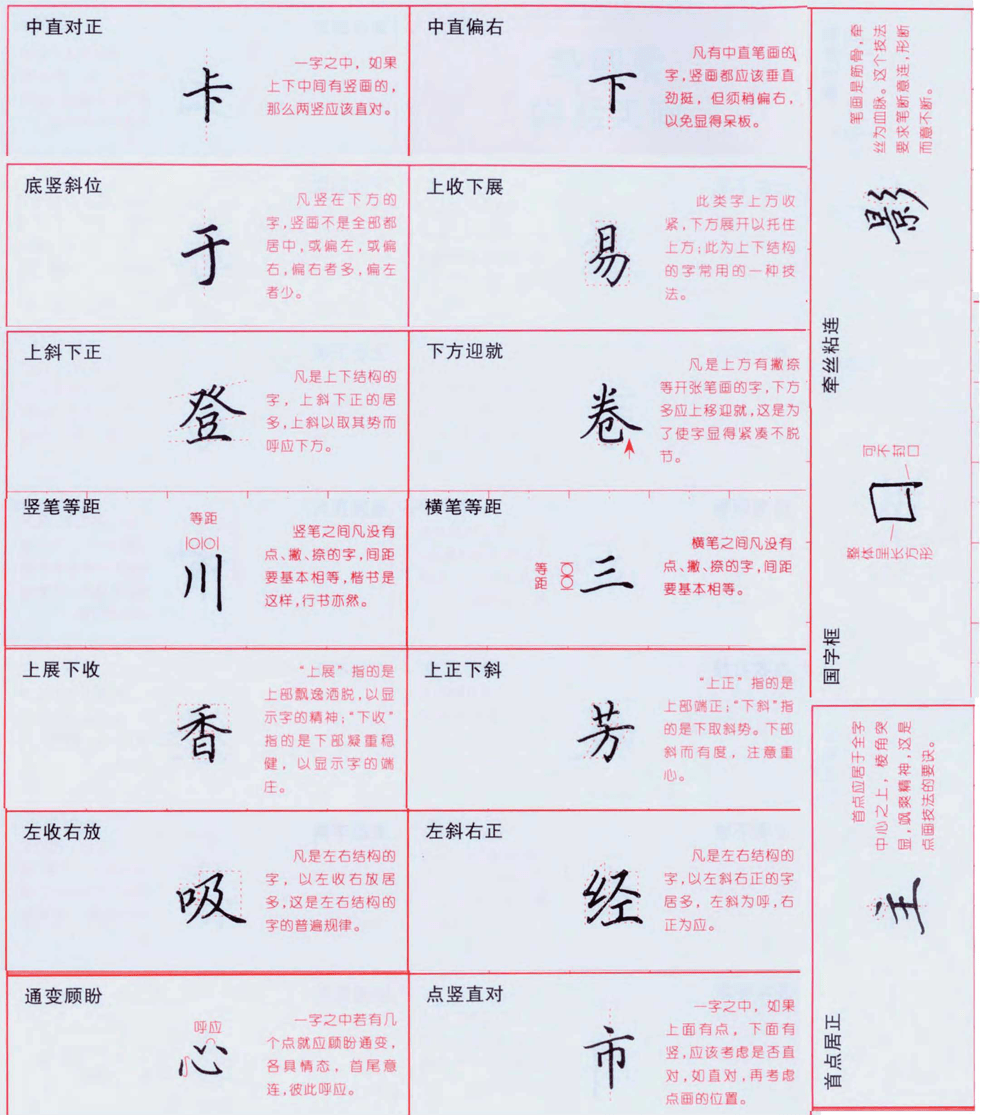 中直对正
卡
一字之中，如果
上下中间有竖画的，
那么两竖应该直对。
中直偏右
下
凡有中直笔画的
字，竖画都应该垂直
劲挺，但须稍偏右，
以免显得呆板。
底竖斜位
于
凡竖在下方的
字，竖画不是全部都
居中，或偏左，或偏
右，偏右者多，偏左
者少。
上收下展
易
此类字上方收
紧，下方展开以托住
上方；此为上下结构
的字常用的一种技
法。
上斜下正
登
凡是上下结构的
字，上斜下正的居
多，上斜以取其势而
呼应下方。
下方迎就
卷
凡是上方有撇捺
等开张笔画的字，下方
多应上移迎就，这是为
了使字显得紧凑不脱
节。
竖笔等距
等距
川
竖笔之间凡没有
点、撇、捺的字，间距
要基本相等，楷书是
这样，行书亦然。
横笔等距
等距
三
横笔之间凡没有
点、撇、捺的字，间距
要基本相等。
上展下收
香
“上展”指的是
上部飘逸洒脱，以显
示字的精神；“下收”
指的是下部凝重稳
健，以显示字的端
庄。
上正下斜
芳
“上正”指的是
上部端正；“下斜”指
的是下取斜势。下部
斜而有度，注意重
心。
左收右放
吸
凡是左右结构的
字，以左收右放居
多，这是左右结构的
字的普遍规律。
左斜右正
经
凡是左右结构的
字，以左斜右正的字
居多，左斜为呼，右
正为应。
通变顾盼
呼应
心
一字之中若有几
个点就应顾盼通变，
各具情态，首尾意
连，彼此呼应。
点竖直对
市
一字之中，如果
上面有点，下面有
竖，应该考虑是否直
对，如直对，再考虑
点画的位置。
牵丝粘连
影
笔画是筋骨，牵
丝为血脉。这个技法
要求笔断意连，形断
而意不断。
国字框
可不封口
囗
整体呈长方形
首点居正
主
首点应居于全字
中心之上，棱角突
显，飒爽精神，这是
点画技法的要诀。